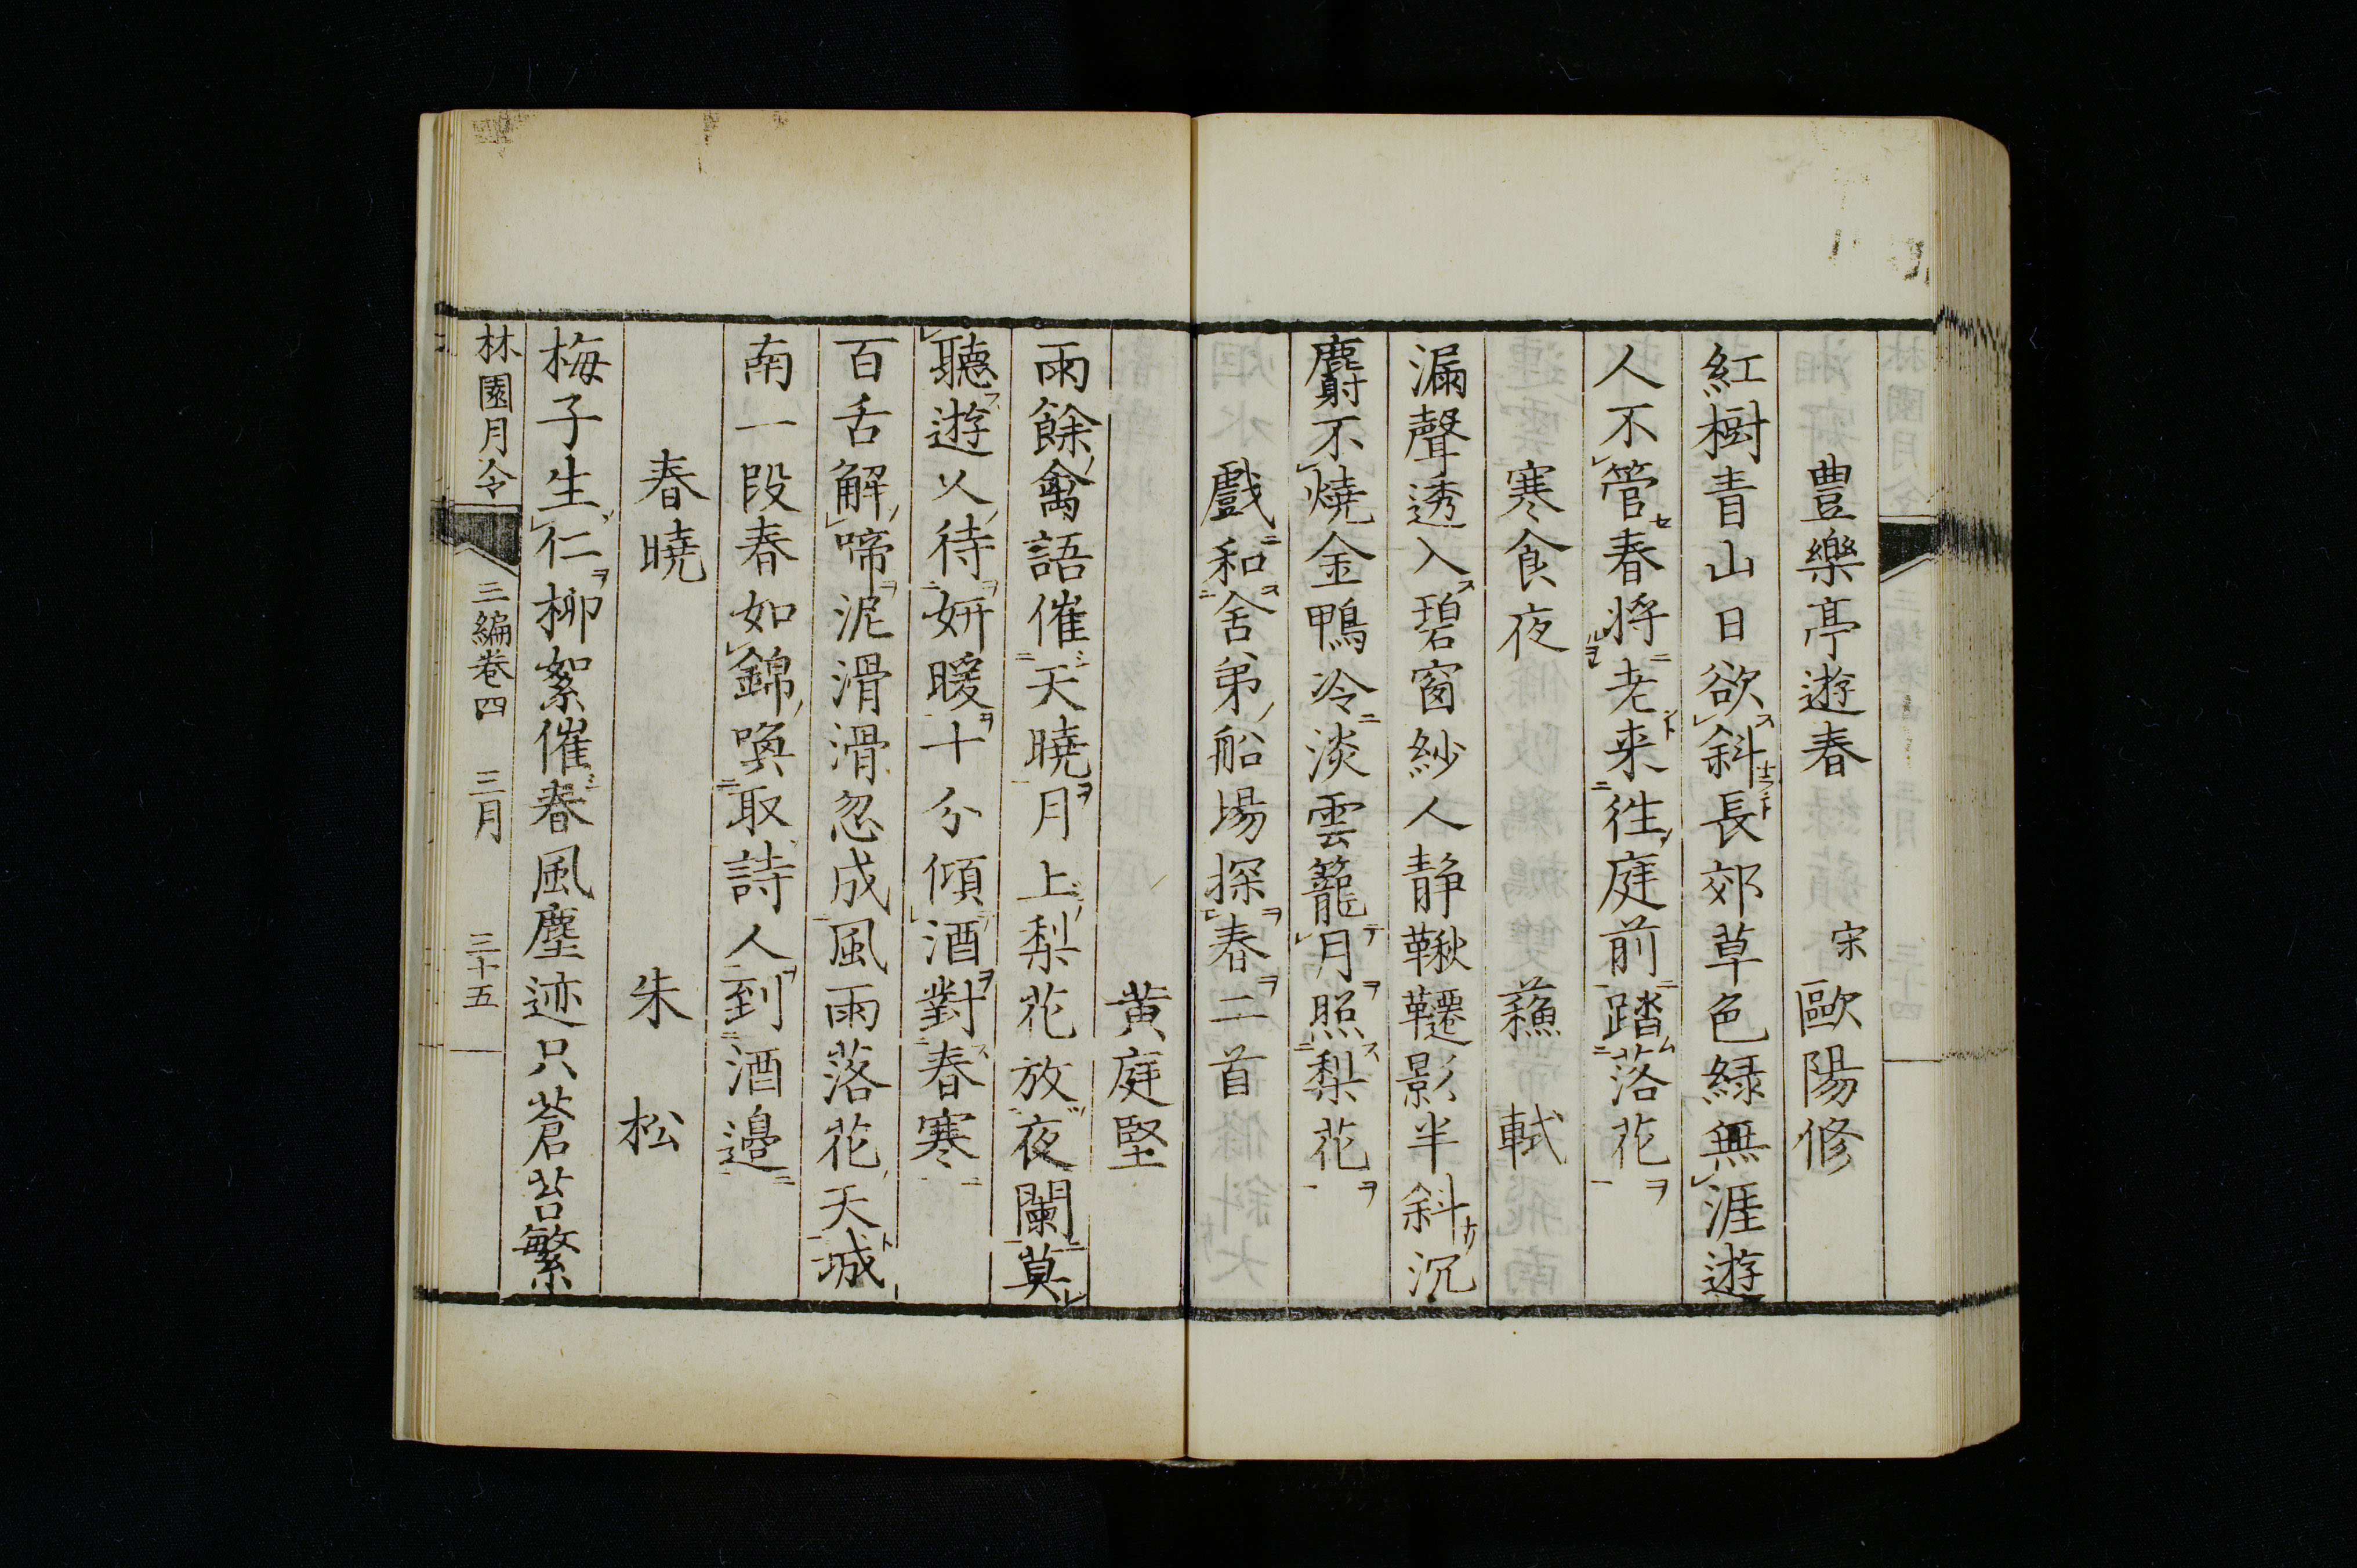 豊樂亭遊春 宋 歐陽修
紅樹青山日欲斜長郊草色緑無涯遊
人不管春將老来徃庭前踏落花
寒食夜 蘓軾
漏聲透入碧窗紗人静鞦韆影半斜沉
麝不燒金鴨冷淡雲籠月照梨花
戲和舍弟船場探春二首
黄庭堅
雨餘禽語催天曉月上梨花放夜闌莫
聽遊人待妍暖十分傾酒對春寒
百舌解啼泥滑滑忽成風雨落花天城
南一段春如錦喚取詩人到酒邊
春曉 朱松
梅子生仁柳絮催春風塵迹只蒼苔繁
林園月令 三編卷四 三月 三十五